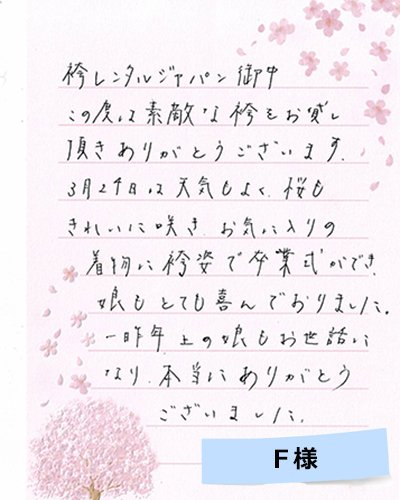 袴レンタルジャパン御中
この度は素敵な袴をお貸し
頂きありがとうございます.
3月24日は天気もよく、桜も
きれいに咲き、お気に入りの
着物に袴姿で卒業式ができ、
娘もとても喜んでおりました.
一昨年、上の娘もお世話に
なり、本当にありがとう
ございました.
F様